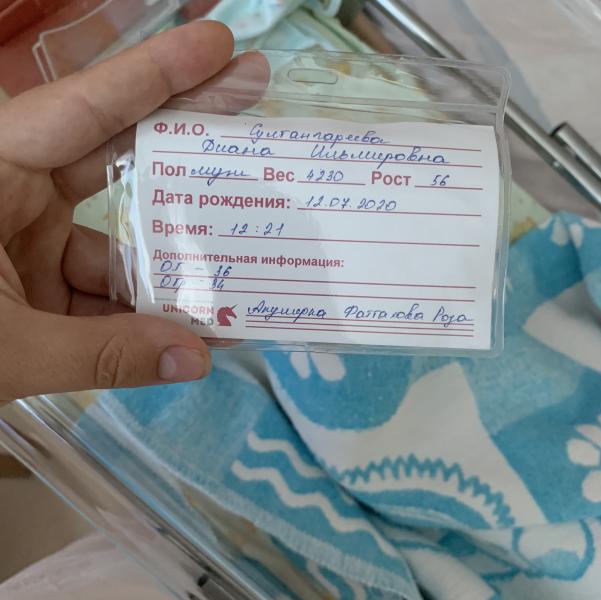 Ф.И.О. Султангареева
Диана Ильмировна
Пол муж Вес 4230 Рост 56
Дата рождения: 12.07.2020
Время: 12:21
Дополнительная информация:
ОГ - 36
ОГр - 34
UNICORN MED Акушерка Фатталова Роза